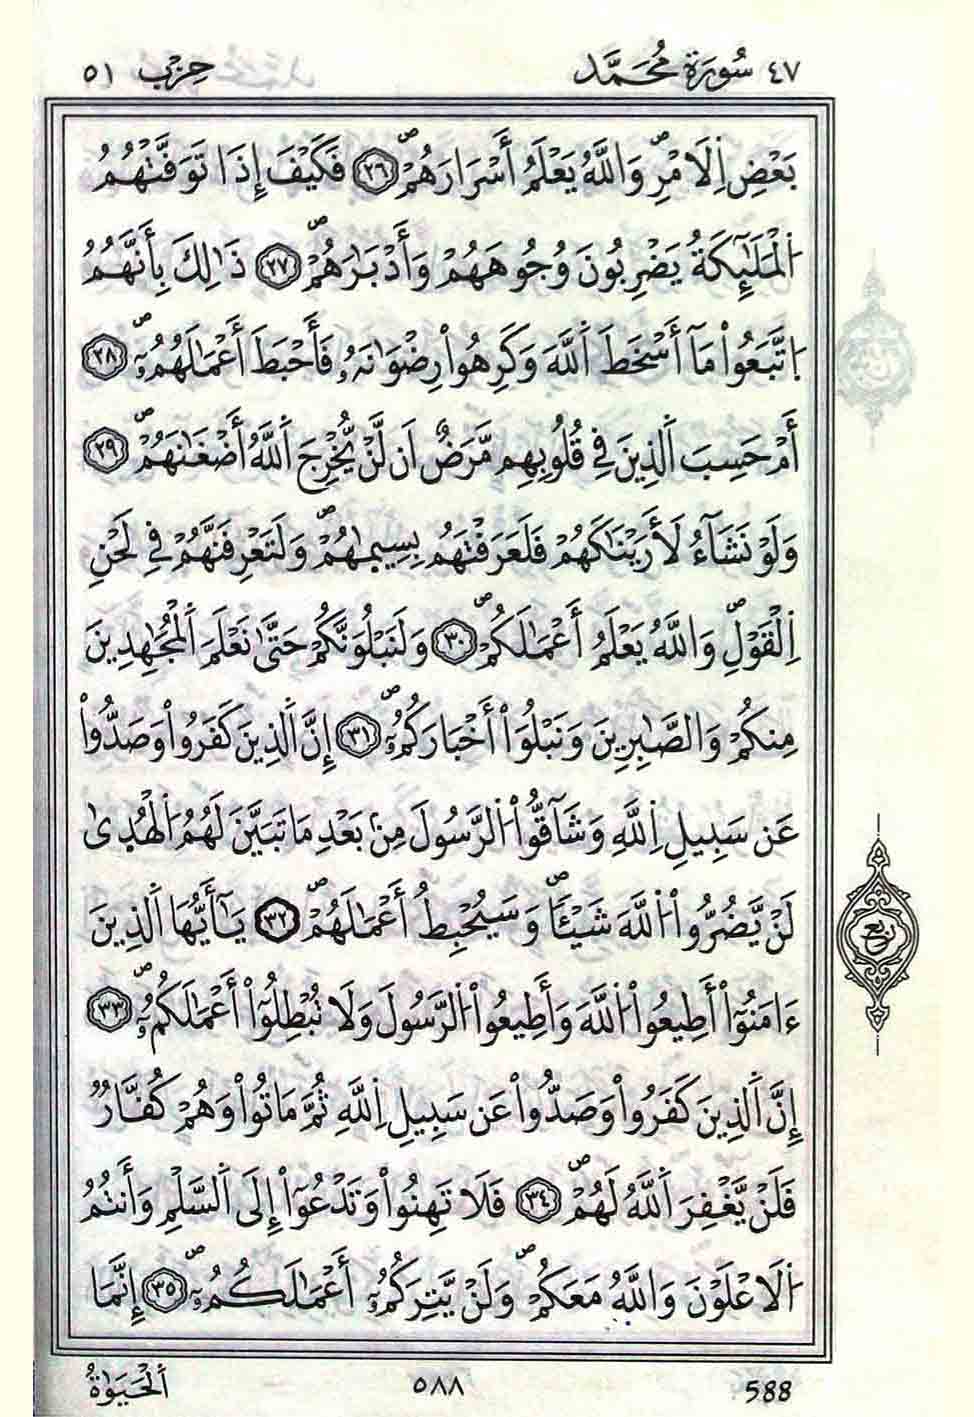 ٤٧ سُورَةُ مُحَمَّد حِزْب ٥١
بَعْضِ اِ۬لَامْرِۖ وَاللَّهُ يَعْلَمُ أَسْرَارَهُمْۖ ٢٦ فَكَيْفَ إِذَا تَوَفَّتْهُمُ
اُ۬لْمَلَٰٓئِكَةُ يَضْرِبُونَ وُجُوهَهُمْ وَأَدْبَٰرَهُمْۖ ٢٧ ذَٰلِكَ بِأَنَّهُمُ
اُ۪تَّبَعُواْ مَآ أَسْخَطَ اَ۬للَّهَ وَكَرِهُواْ رِضْوَٰنَهُۥ فَأَحْبَطَ أَعْمَٰلَهُمُۥٓۖ ٢٨
أَمْ حَسِبَ اَ۬لذِينَ فِي قُلُوبِهِم مَّرَضٌ اَن لَّنْ يُّخْرِجَ اَ۬للَّهُ أَضْغَٰنَهُمْۖ ٢٩
وَلَوْ نَشَآءُ لَأَرَيْنَٰكَهُمْ فَلَعَرَفْتَهُم بِسِيمٰ۪هُمْۖ وَلَتَعْرِفَنَّهُمْ فِي لَحْنِ
اِ۬لْقَوْلِۖ وَاللَّهُ يَعْلَمُ أَعْمَٰلَكُمْۖ ٣٠ وَلَنَبْلُوَنَّكُمْ حَتَّىٰ نَعْلَمَ اَ۬لْمُجَٰهِدِينَ
مِنكُمْ وَالصَّٰبِرِينَ وَنَبْلُوَاْ أَخْبَارَكُمُۥٓۖ ٣١ إِنَّ اَ۬لذِينَ كَفَرُواْ وَصَدُّواْ
عَن سَبِيلِ اِ۬للَّهِ وَشَآقُّواْ اُ۬لرَّسُولَ مِنۢ بَعْدِ مَا تَبَيَّنَ لَهُمُ اُ۬لْهُد۪ىٰ
لَنْ يَّضُرُّواْ اُ۬للَّهَ شَيْـٔاٗۖ وَسَيُحْبِطُ أَعْمَٰلَهُمْۖ ٣٢ يَٰٓأَيُّهَا اَ۬لذِينَ
ءَامَنُوٓاْ أَطِيعُواْ اُ۬للَّهَ وَأَطِيعُواْ اُ۬لرَّسُولَ وَلَا تُبْطِلُوٓاْ أَعْمَٰلَكُمُۥٓۖ ٣٣
إِنَّ اَ۬لذِينَ كَفَرُواْ وَصَدُّواْ عَن سَبِيلِ اِ۬للَّهِ ثُمَّ مَاتُواْ وَهُمْ كُفَّارٞ
فَلَنْ يَّغْفِرَ اَ۬للَّهُ لَهُمْۖ ٣٤ فَلَا تَهِنُواْ وَتَدْعُوٓاْ إِلَى اَ۬لسَّلْمِ وَأَنتُمُ
اُ۬لَاعْلَوْنَ وَاللَّهُ مَعَكُمْۖ وَلَنْ يَّتِرَكُمُۥٓ أَعْمَٰلَكُمُۥٓۖ ٣٥ إِنَّمَا
ربع
اَ۬لْحَيَوٰةُ ٥٨٨ 588